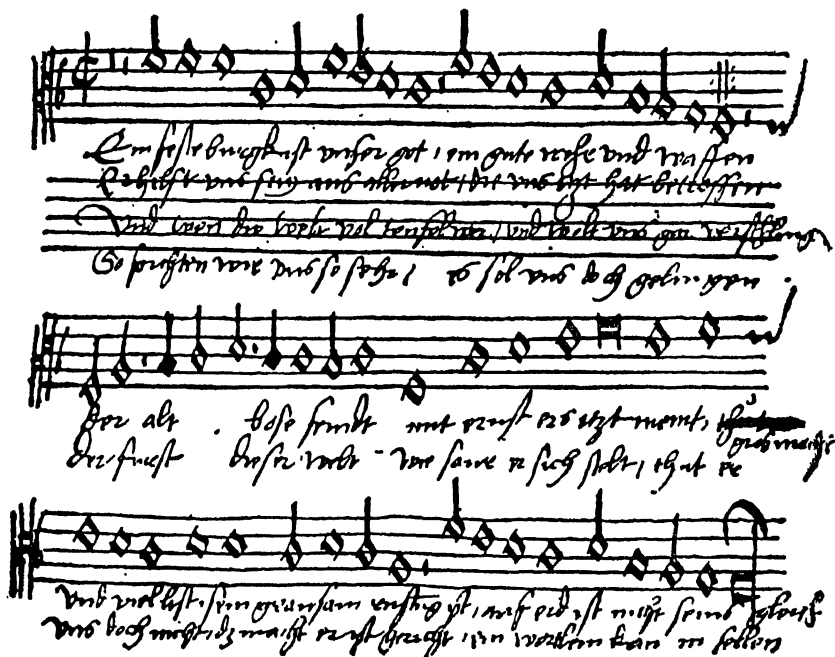 Ein feste burgk ist unser got, ein gute wehr und waffen
Er hilft uns frey aus aller not, die uns ytzt hat betroffen
Und wen die welt vol teufel wer, und wolt uns gar verschlingen
So furchten wir uns so sehr, es sol uns doch gelingen
Der alt bose feindt mit ernst ers itzt meint, gros macht
der furst dieser welt wie saur er sich stelt, thut er
und viel list, sein grausam rustu&#771;g yst, auf erd ist nicht seins gleich
uns doch nicht, dz macht er ist gericht, ein wortlein kan in fellen